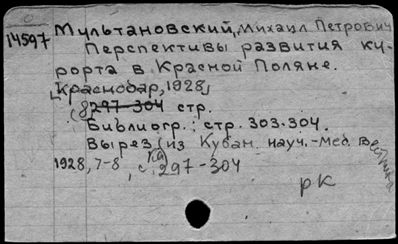 14597
Мультановский, Михаил Петрович
Перспективы развития ку-
рорта в Красной Поляне.
[Краснодар, 1928]
(8) 297-304 стр.
Библиогр.: стр. 303-304.
Вырез. из Кубан. науч.-мед. Вестника
1928, 7-8, с 297-304
рк